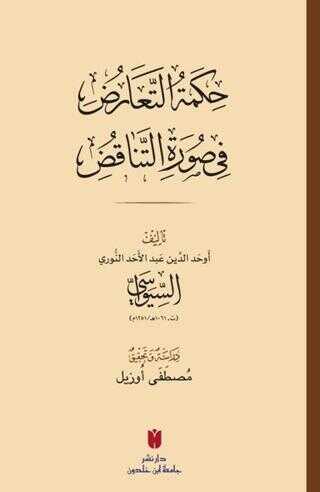 حِكمَةُ التَّعَارُضِ
فِي صُورَةِ التَّنَاقُضِ
تأليف
أوحَد الدِّين عَبد الأحَد النُّوري
السِّيوَاسِيّ
(ت. ١٠٦١هـ/١٢٥١م)
دِرَاسَة وَتحقيق
مُصطَفَى أُوزيل
دار نشر
جامعة ابن خلدون